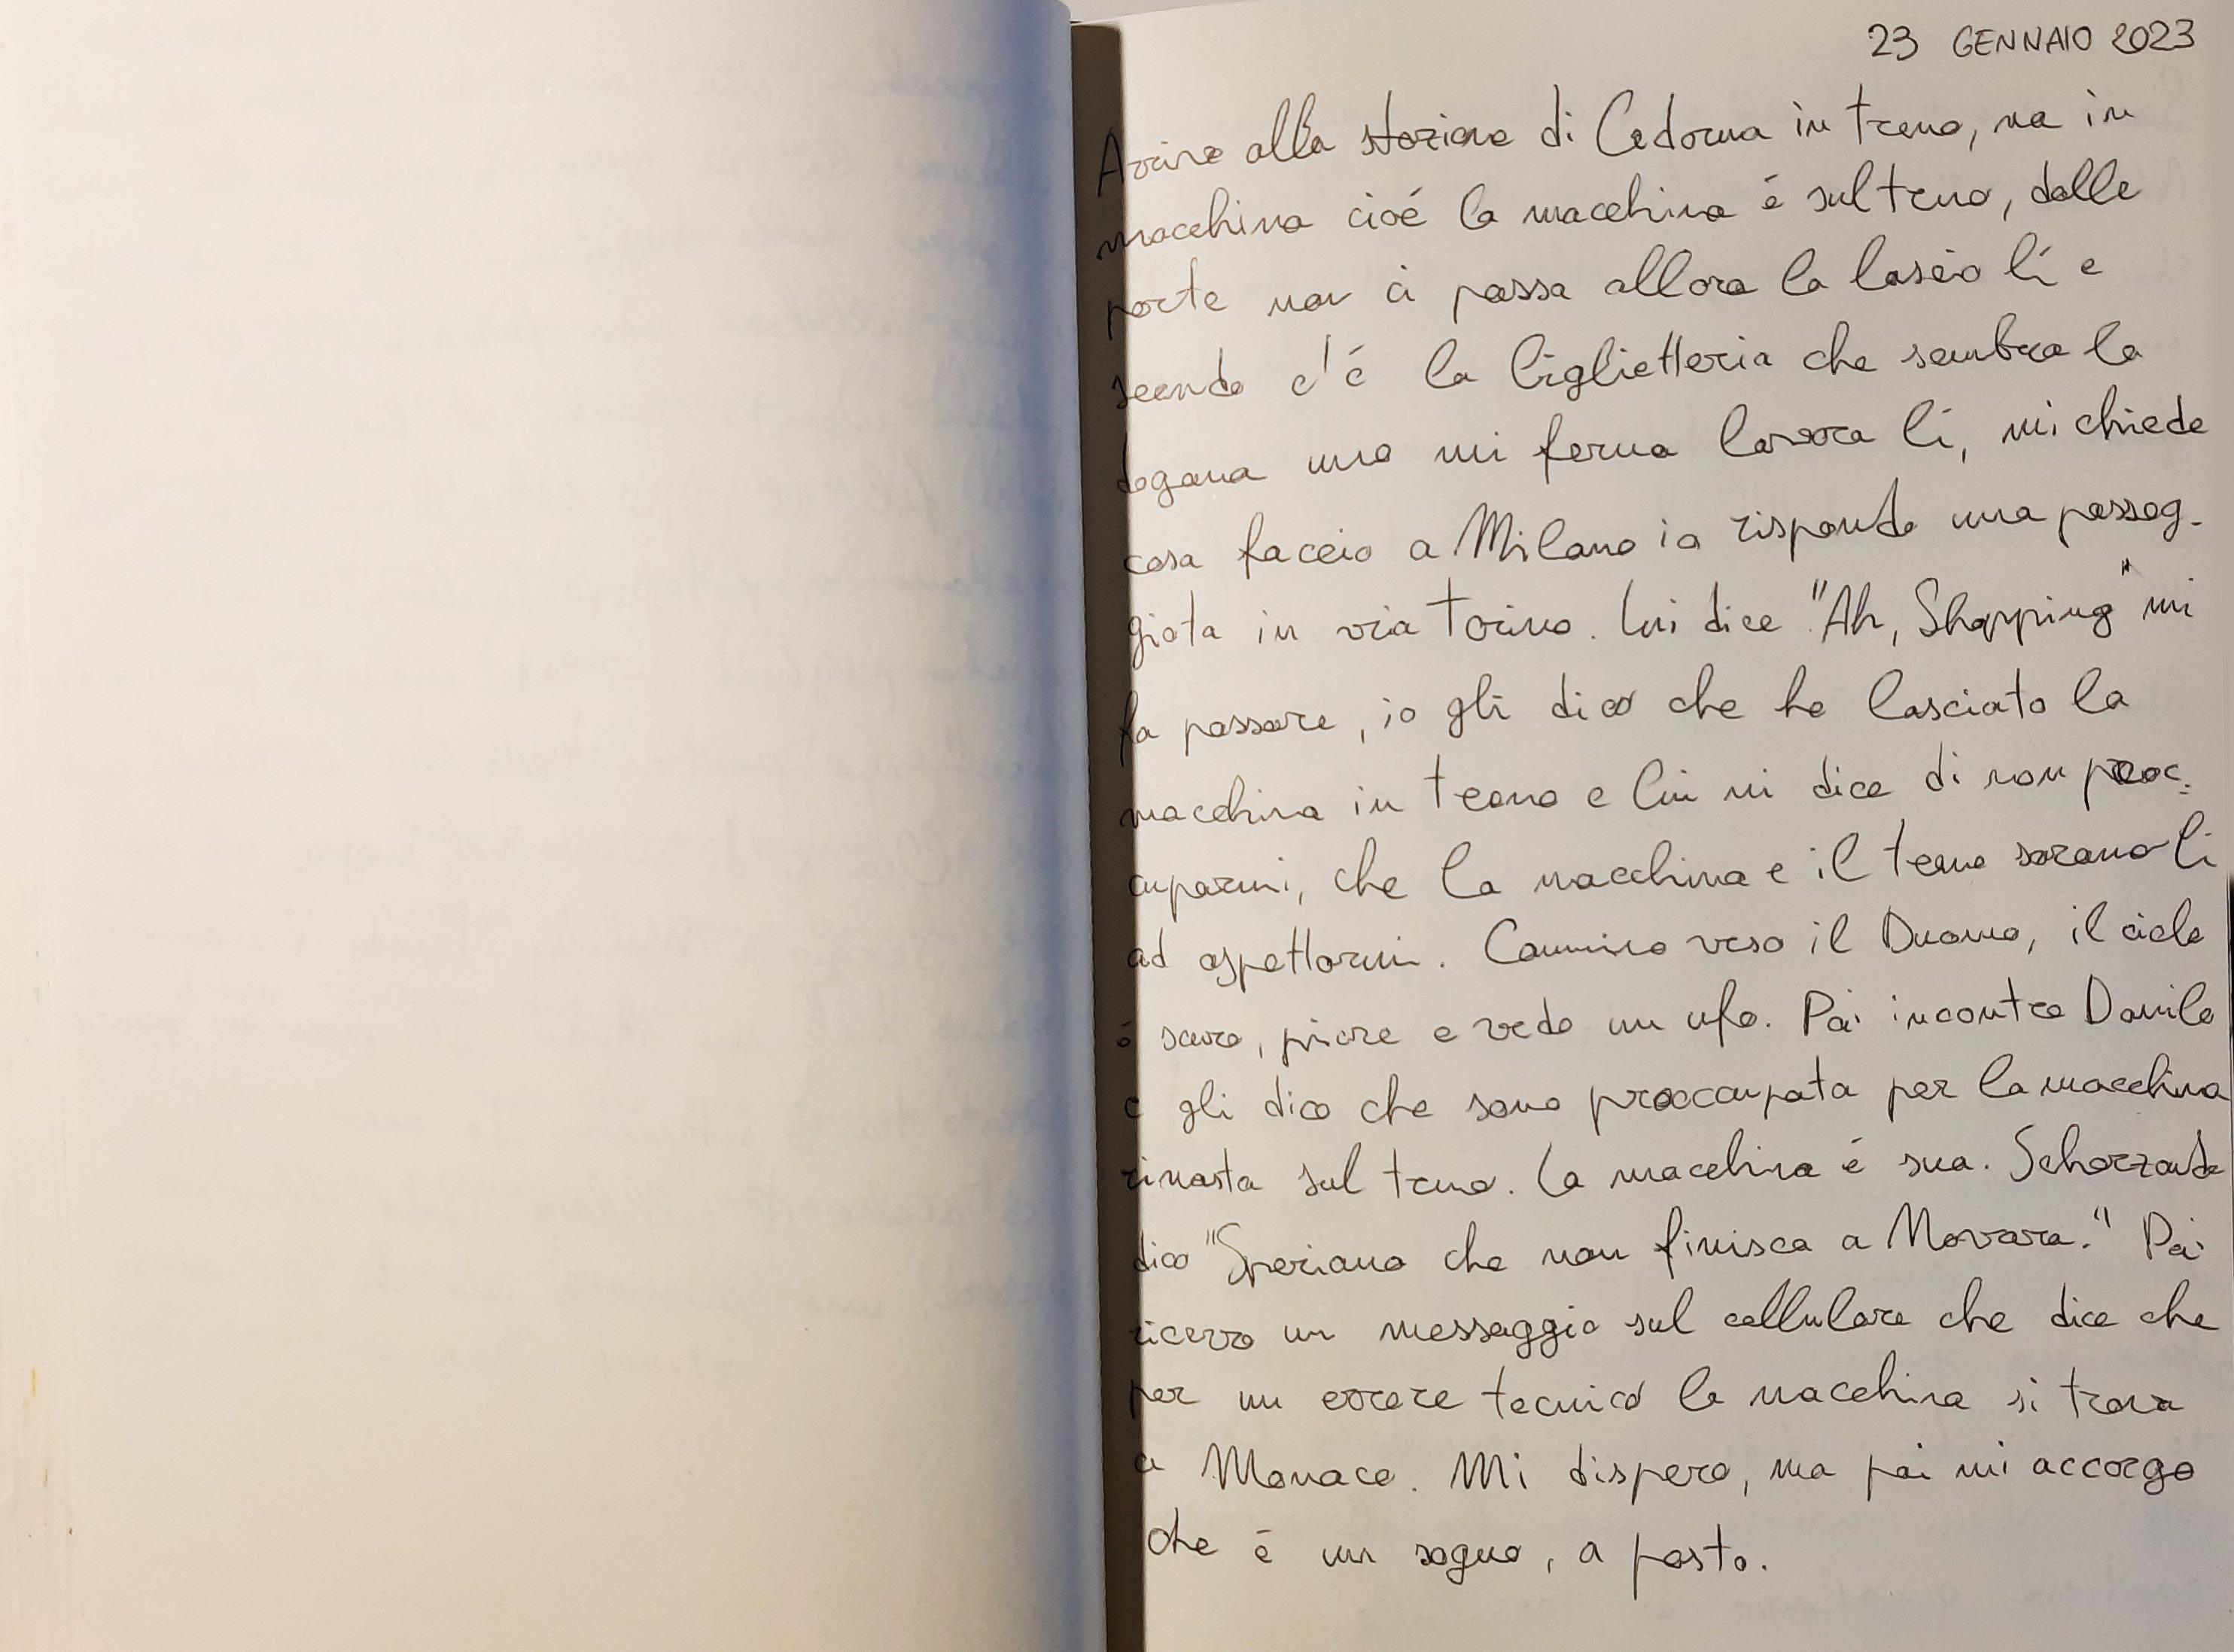 23 GENNAIO 2023
Arrivo alla stazione di Cadorna in treno, ma in
macchina cioé la macchina é sul treno, dalle
porte non ci passa allora la lascio lí e
scendo c'é la biglietteria che sembra la
dogana uno mi ferma lavora lí, mi chiede
cosa faccio a Milano io rispondo una passeg-
giata in via Torino. Lui dice "Ah, Shopping" mi
fa passare, io gli dico che ho lasciato la
macchina in treno e lui mi dice di non preoc-
cuparmi, che la macchina e il treno saranno lí
ad aspettarmi. Cammino verso il Duomo, il cielo
é scuro, piove e vedo un ufo. Poi incontro Danilo
e gli dico che sono preoccupata per la macchina
rimasta sul treno. La macchina é sua. Scherzando
dico "Speriamo che non finisca a Novara." Poi
ricevo un messaggio sul cellulare che dice che
per un errore tecnico la macchina si trova
a Monaco. Mi dispero, ma poi mi accorgo
che é un sogno, a posto.